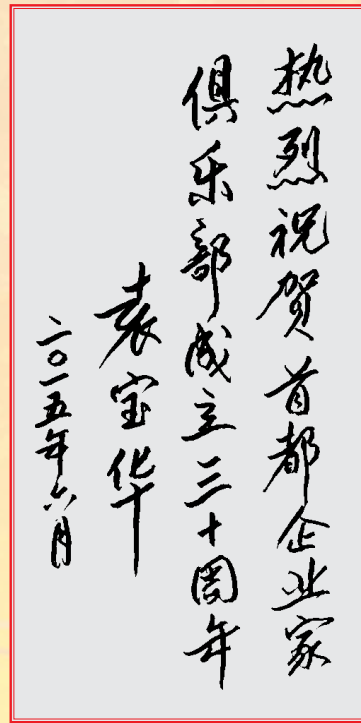 热烈祝贺首都企业家
俱乐部成立三十周年
袁宝华
二〇一五年六月